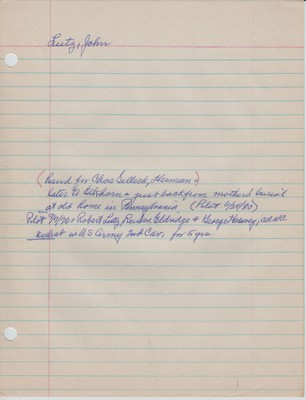 Lutz, John
(Ranch for Chas Sellick, Herman -)
Later to Elkhorn & just back from mothers' burial
at old home in Pennsylvania (Pilot 6/24/95)
Pilot Robert Lutz, Reuben Eldridge & George Hersey, all
enlist in US Army 2nd Cav. for 5 yrs